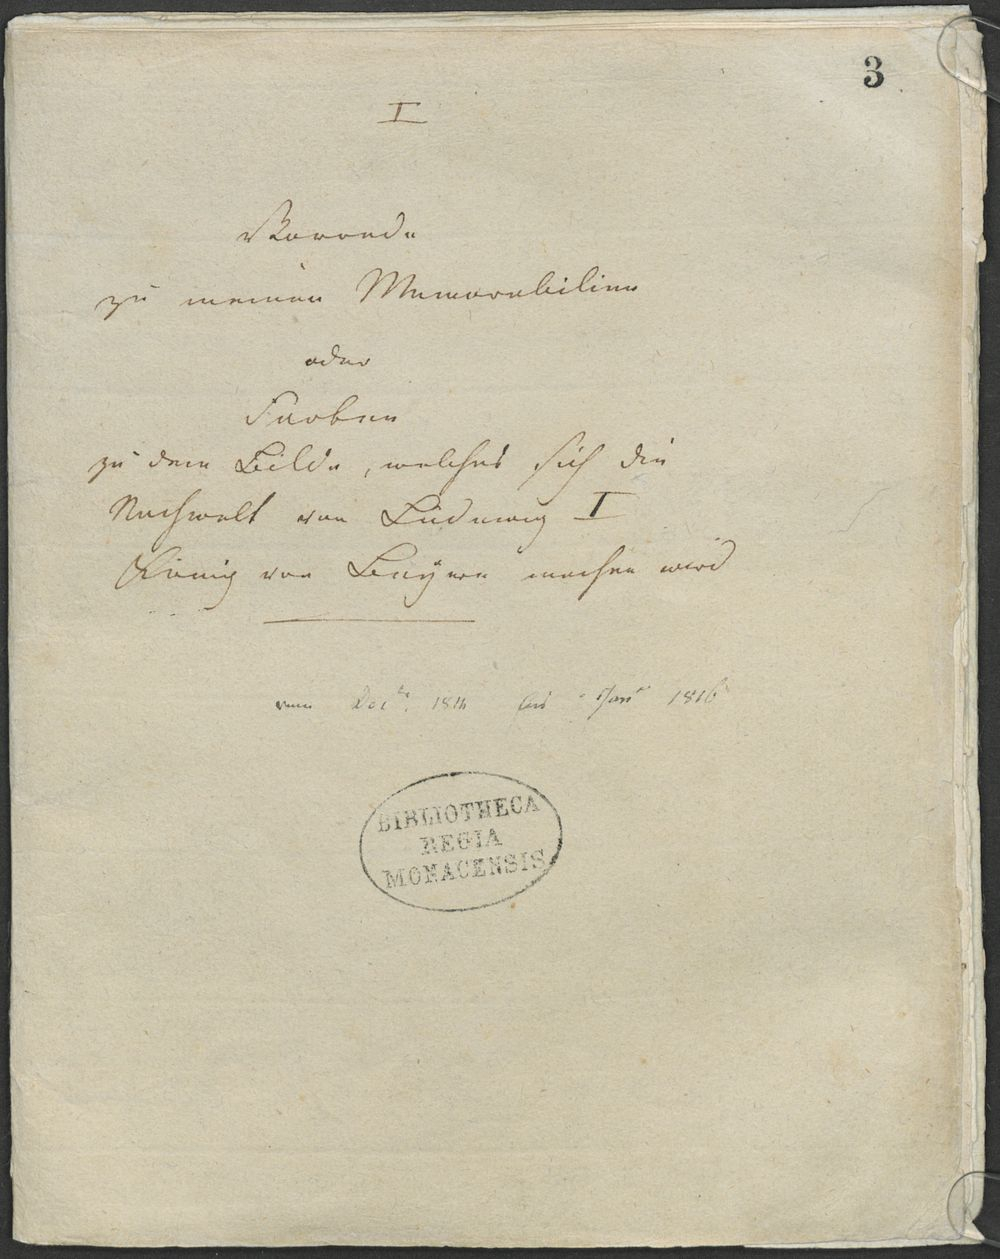 3
I
Vorrede
zu meinen Memorabilien
oder
Farben
zu dem Bilde, welches sich die
Nachwelt von Ludwig I
König von Bayern machen wird
vom Dec. bis Jan 1816
BIBLIOTHECA
REGIA
MONACENSIS